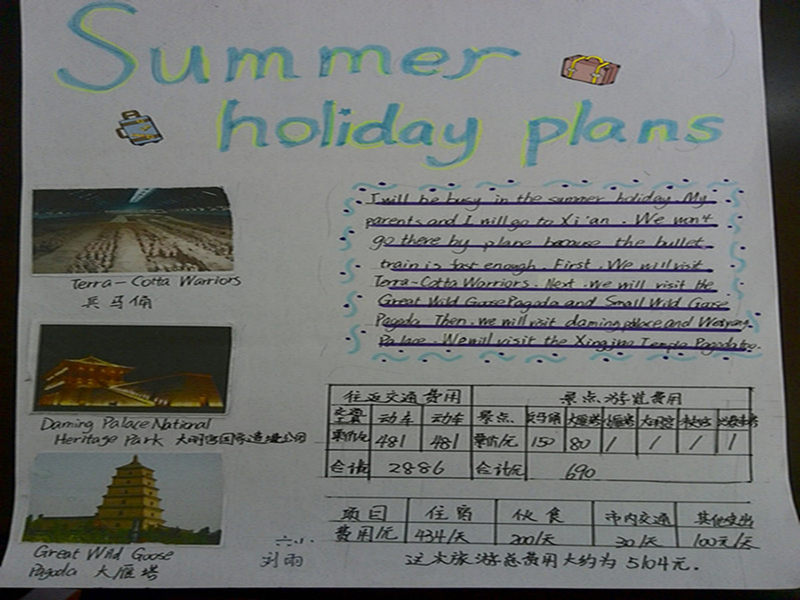 Summer
holiday plans
I will be busy in the summer holiday. My
parents and I will go to Xi'an. We won't
go there by plane because the bullet
train is fast enough. First, We will visit
Terra-Cotta Warriors. Next, we will visit the
Great Wild Goose Pagoda and Small Wild Goose
Pagoda. Then, we will visit daming palace and
Palace. We will visit the Xingjiao Temple Pagoda too.
Terra-Cotta Warriors
兵马俑
Daming Palace National
Heritage Park 大明宫国家遗址公园
Great Wild Goose
Pagoda 大雁塔
六
刘雨
往返交通费用 景点游览费用
交通工具 动车 动车 景点 兵马俑 大雁塔 小雁塔 大明宫
票价/元 481 481 票价/元 150 80 / / / /
合计/元 2886 合计/元 690
项目 住宿 伙食 市内交通 其他支出
费用/元 434/天 200/天 30/天 100元/天
这次旅游总费用大约为5104元.